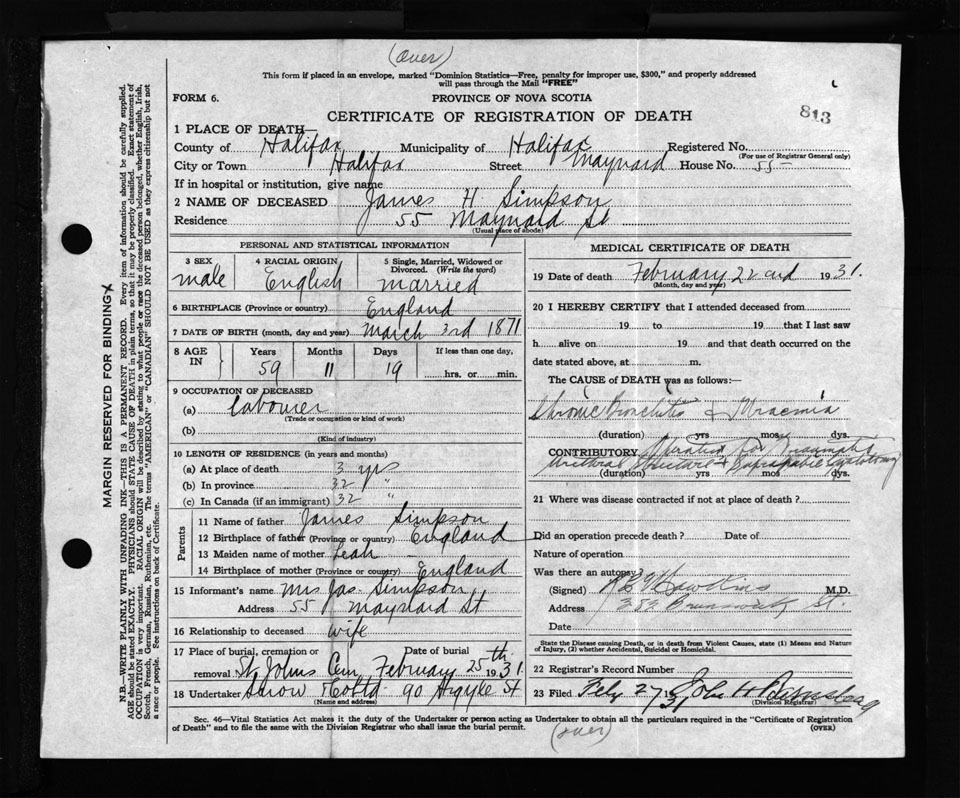 (over)
This form if placed in an envelope, marked "Dominion Statistics—Free, penalty for improper use, $300," and properly addressed
will pass through the Mail "FREE"
FORM 6.
PROVINCE OF NOVA SCOTIA
CERTIFICATE OF REGISTRATION OF DEATH
813
1 PLACE OF DEATH—
County of Halifax Municipality of Halifax Registered No.
(For use of Registrar General only)
City or Town Halifax Street Maynard House No. 55
If in hospital or institution, give name
2 NAME OF DECEASED James H Simpson
Residence 55 Maynard St
(Usual place of abode)
PERSONAL AND STATISTICAL INFORMATION
3 SEX
male
4 RACIAL ORIGIN
English
5 Single, Married, Widowed or
Divorced. (Write the word)
married
6 BIRTHPLACE (Province or country) England
7 DATE OF BIRTH (month, day and year) March 3rd 1871
8 AGE IN
Years Months Days If less than one day,
59 11 19 hrs. or min.
9 OCCUPATION OF DECEASED
(a) Labourer
(Trade or occupation or kind of work)
(b)
(Kind of industry)
10 LENGTH OF RESIDENCE (in years and months)
(a) At place of death 3 yrs
(b) In province 32 "
(c) In Canada (if an immigrant) 32 "
Parents
11 Name of father James Simpson
12 Birthplace of father (Province or country) England
13 Maiden name of mother Leah —
14 Birthplace of mother (Province or country) England
15 Informant's name Mrs Jas. Simpson
Address 55 Maynard St
16 Relationship to deceased wife
17 Place of burial, cremation or Date of burial
removal St. Johns Cem February 25th 31.
18 Undertaker Snow & Co Ltd 90 Argyle St
(Name and address)
MEDICAL CERTIFICATE OF DEATH
19 Date of death February 22nd 1931.
(Month, day and year)
20 I HEREBY CERTIFY that I attended deceased from
19 to 19 that I last saw
h alive on 19 and that death occurred on the
date stated above, at m.
The CAUSE of DEATH was as follows:—
Chronic Bronchitis & Uraemia
(duration) yrs mos dys.
CONTRIBUTORY Operated for
Urethral Stricture & Suprapubic Cystotomy
(duration) yrs mos dys.
21 Where was disease contracted if not at place of death?
Did an operation precede death? Date of
Nature of operation
Was there an autopsy?
(Signed) Hawkins M.D.
Address Brunswick St.
Date
State the Disease causing Death, or in death from Violent Causes, state (1) Means and
Nature of Injury, (2) whether Accidental, Suicidal or Homicidal.
22 Registrar's Record Number
23 Filed Feby 27 1931 John H
(Division Registrar)
Sec. 46—Vital Statistics Act makes it the duty of the Undertaker or person acting as Undertaker to obtain all the particulars required in the "Certificate of Registration
of Death" and to file the same with the Division Registrar who shall issue the burial permit. (OVER)
(over)
MARGIN RESERVED FOR BINDING
N.B.—WRITE PLAINLY WITH UNFADING INK—THIS IS A PERMANENT RECORD. Every item of information should be carefully supplied.
AGE should be stated EXACTLY. PHYSICIANS should STATE CAUSE OF DEATH in plain terms, so that it may be properly classified. Exact statement of
OCCUPATION is very important. RACIAL ORIGIN will be described by stating to what people or race the deceased person belonged, whether English, Irish,
Scotch, French, German, Russian, Ruthenian, etc. The terms "AMERICAN" or "CANADIAN" SHOULD NOT BE USED as they express citizenship but not
a race or people. See instructions on back of Certificate.